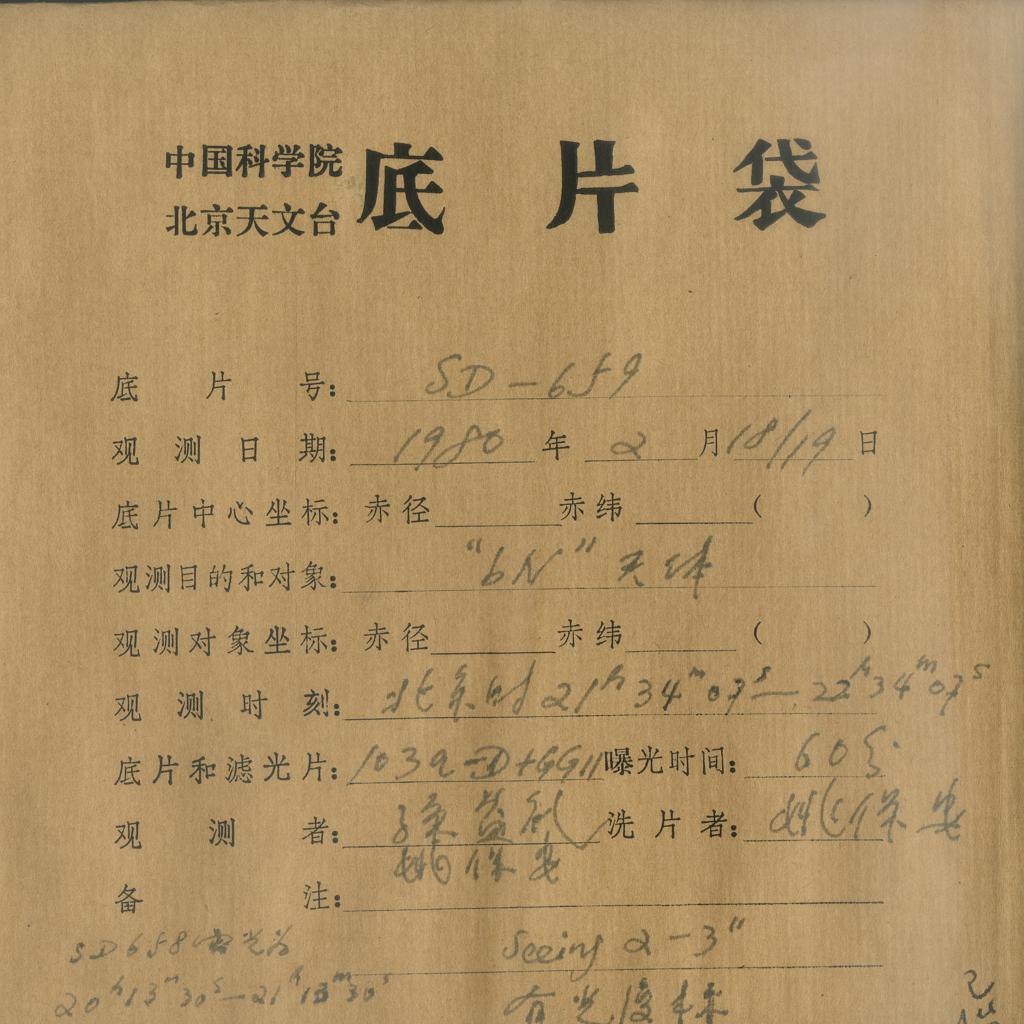 中国科学院
北京天文台
底片袋
底片号: SD-659
观测日期: 1980年2月18/19日
底片中心坐标: 赤径 赤纬 ( )
观测目的和对象: "bN"天体
观测对象坐标: 赤径 赤纬 ( )
观测时刻: 北京时21h34m07s—22h34m07s
底片和滤光片: 103a-D+GG11 曝光时间: 60分
观测者: 孙益礼 洗片者: 姚保安
姚保安
备注:
SD658 Seeing 2-3"
20h13m30s—21h13m30s 有光度标